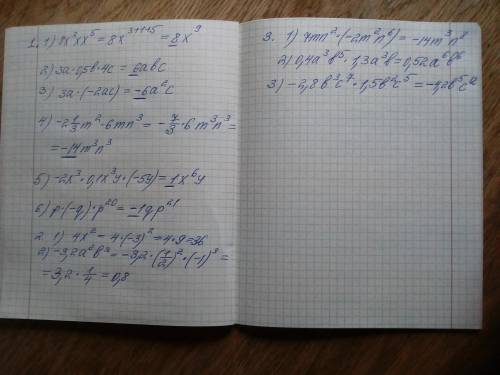 1. 1) 8x³xx⁵ = 8x³⁺¹⁺⁵ = 8x⁹
2) 3a·0,5b·4c = 6abc
3) 3a·(-2ac) = -6a²c
4) -2 1/3 m²·6mn³ = -7/3·6m³n³ =
= -14m³n³
5) -2x³·0,1x³y·(-5y) = 1x⁶y
6) p·(-q)·p²⁰ = -1qp²¹
2. 1) 4x² = 4·(-3)² = 4·9 = 36
2) -3,2a²b³ = -3,2·(1/2)²·(-1)³ =
= 3,2·1/4 = 0,8
3. 1) 7mn²·(-2m²n⁶) = -14m³n⁸
2) 0,4a³b⁵·1,3a³b = 0,52a⁶b⁶
3) -2,8b³c⁷·1,5b²c⁵ = -4,2b⁵c¹²